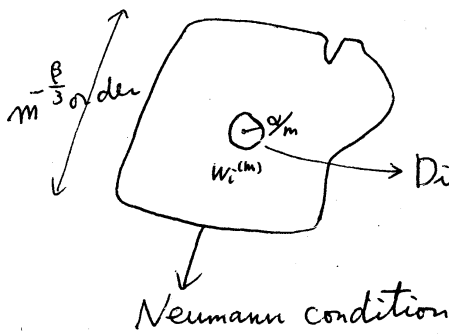 m^{-β/3} order
α/m
w_i^{(m)}
Di
Neumann condition